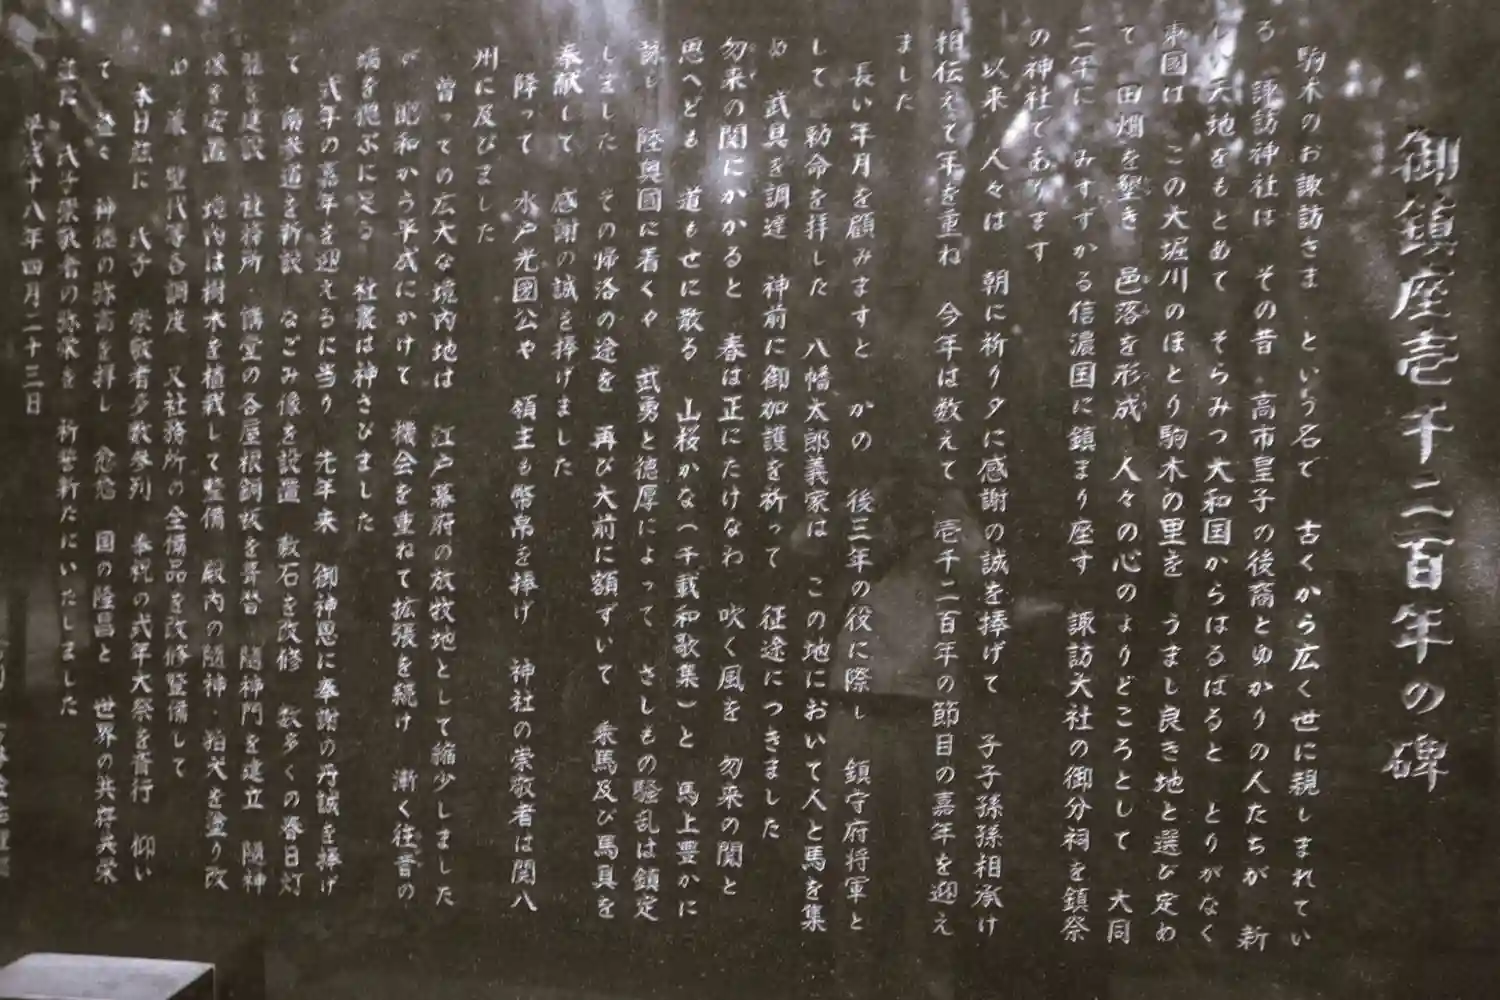 御鎮座壱千二百年の碑
駒木のお諏訪さま という名で 古くから広く世に親しまれてい
る 諏訪神社は その昔 高市皇子の後裔とゆかりの人たちが 新
しい天地をもとめて そらみつ大和国からはるばると とりがなく
東国は この大堀川のほとり駒木の里を うまし良き地と選び定め
て 田畑を墾き 邑落を形成 人々の心のよりどころとして 大同
二年に みすずかる信濃国に鎮まり座す 諏訪大社の御分祠を鎮祭
の神社であります
以来 人々は 朝に祈り夕に感謝の誠を捧げて 子子孫孫相承け
相伝えて年を重ね 今年は数えて 壱千二百年の節目の嘉年を迎え
ました
長い年月を顧みますと かの 後三年の役に際し 鎮守府将軍と
して 勅命を拝した 八幡太郎義家は この地において人と馬を集
め 武具を調達 神前に御加護を祈って 征途につきました
勿来の関にかかると 春は正にたけなわ 吹く風を 勿来の関と
思へども 道もせに散る 山桜かな(千載和歌集)と 馬上豊かに
詠じ 陸奥国に着くや 武勇と徳厚によって さしもの騒乱は鎮定
しました その帰洛の途を 再び大前に額ずいて 乗馬及び馬具を
奉献して 感謝の誠を捧げました
降って 水戸光圀公や 領主も幣帛を捧げ 神社の崇敬者は関八
州に及びました
曽っての広大な境内地は 江戸幕府の放牧地として縮少しました
が 昭和から平成にかけて 機会を重ねて拡張を続け 漸く往昔の
端を偲ぶに足る 社叢は神さびました
式年の嘉年を迎えるに当り 先年来 御神恩に奉謝の丹誠を捧げ
て 南参道を新設 なごみ像を設置 敷石を改修 数多くの春日灯
籠を建設 社務所 講堂の各屋根銅板を葺替 随神門を建立 随神
像を安置 境内は樹木を植栽して整備 殿内の随神・狛犬を塗り改
め 簾・壁代等各調度 又社務所の全備品を改修整備して
本日茲に 氏子 崇敬者多数参列 奉祝の式年大祭を斎行 仰い
て 神徳の弥高を拝し 念 国の隆昌と 世界の共存共栄
また 氏子崇敬者の弥栄を 祈誓新たにいたしました
平成十八年四月二十三日